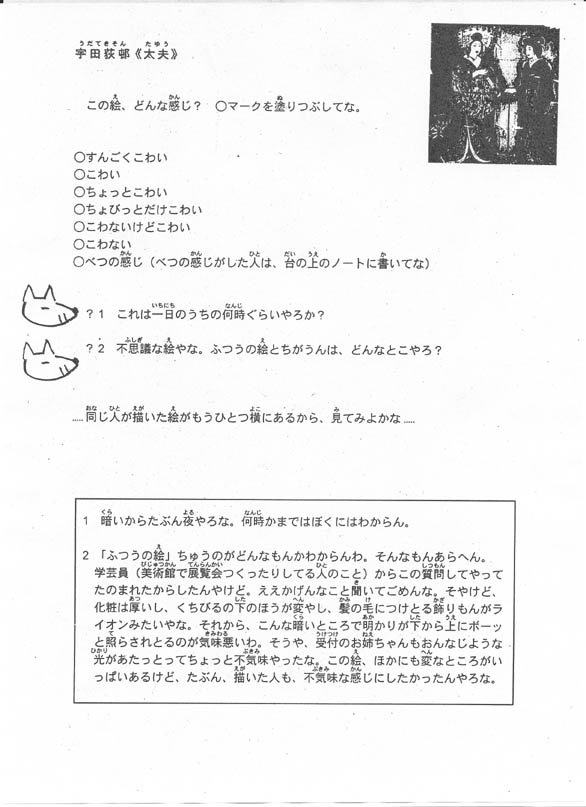 宇田荻邨《太夫》
この絵、どんな感じ？　○マークを塗りつぶしてな。
○すんごくこわい
○こわい
○ちょっとこわい
○ちょびっとだけこわい
○こわないけどこわい
○こわない
○べつの感じ（べつの感じがした人は、台の上のノートに書いてな）
？１　これは一日のうちの何時ぐらいやろか？
？２　不思議な絵やな。ふつうの絵とちがうんは、どんなとこやろ？
.....同じ人が描いた絵がもうひとつ横にあるから、見てみよかな.....
１　暗いからたぶん夜やろな。何時かまではぼくにはわからん。
２「ふつうの絵」ちゅうのがどんなもんかわからんわ。そんなもんあらへん。
学芸員（美術館で展覧会つくったりしてる人のこと）からこの質問してやって
たのまれたからしたんやけど。ええかげんなこと聞いてごめんな。そやけど、
化粧は厚いし、くちびるの下のほうが変やし、髪の毛につけとる飾りもんがラ
イオンみたいやな。それから、こんな暗いところで明かりが下から上にボーッ
と照らされとるのが気味悪いわ。そうや、受付のお姉ちゃんもおんなじような
光があたっとってちょっと不気味やったな。この絵、ほかにも変なところがい
っぱいあるけど、たぶん、描いた人も、不気味な感じにしたかったんやろな。